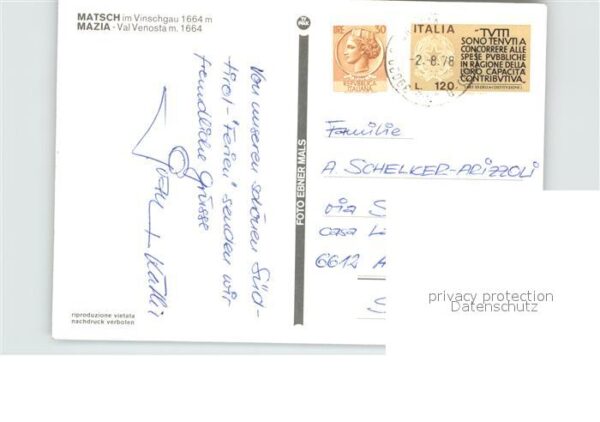 MATSCH im Vinschgau 1664 m
MAZIA - Val Venosta m. 1664
Von unseren schönen Süd-
tirol-"Ferien" senden wir
freundliche Grüsse
+ Kathi
riproduzione vietata
nachdruck verboten
FOTO EBNER MALS
LIRE 30
REPUBBLICA
ITALIANA
ITALIA
TUTTI
SONO TENUTI A
CONCORRERE ALLE
SPESE PUBBLICHE
IN RAGIONE DELLA
LORO CAPACITÀ
CONTRIBUTIVA.
L. 120
-2.-8.78
Familie
A. SCHELKER-ARIZZOLI
via S
casa L
6612 A
S
privacy protection
Datenschutz